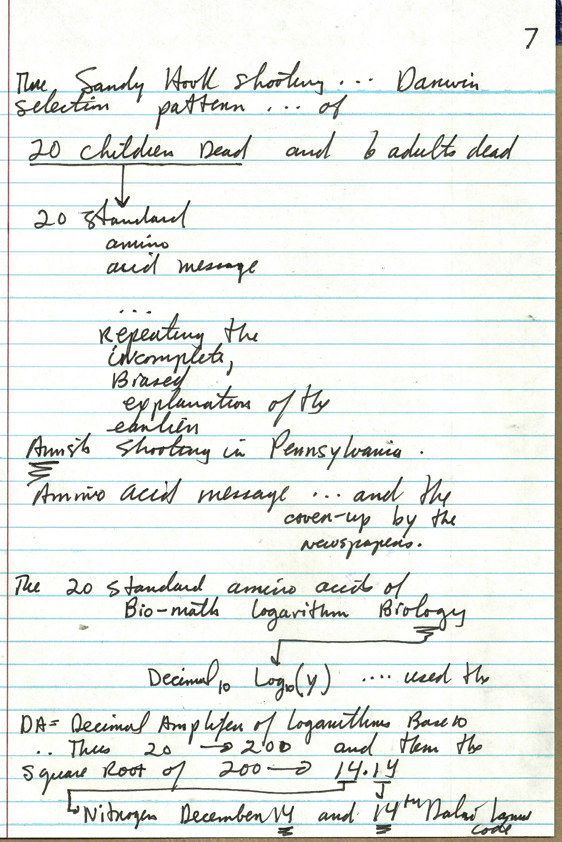 7
Thus, Sandy Hook shooting ... Darwin
selection pattern ... of
20 children Dead and 6 adults dead
20 standard
amino
acid message
...
Repeating the
incomplete,
Biased
explanation of the
earlier
Amish shooting in Pennsylvania.
Amino acid message ... and the
cover-up by the
newspapers.
The 20 standard amino acids of
Bio-math Logarithm Biology
Decimal10 Log10(y) .... used the
DA = Decimal Amplifer of Logarithms Base 10
... Thus 20 → 200 and then the
Square Root of 200 → 14.14
Nitrogen December 14 and 14th
code